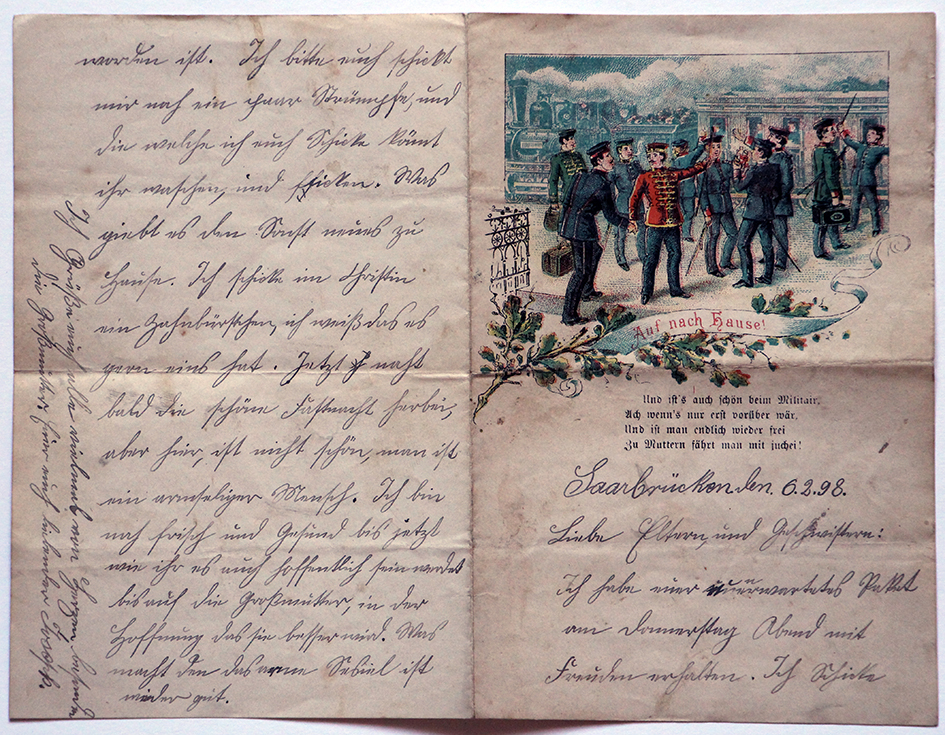 Auf nach Hause!
Und ist's auch schön beim Militair,
Ach wenn's nur erst vorüber wär,
Und ist man endlich wieder frei
Zu Muttern fährt man mit juchei!
Saarbrücken den 6.2.98.
Liebe Eltern, und Geschwistern:
Ich habe euer unerwartetes Paket
am Donnerstag Abend mit
Freuden erhalten. Ich Schicke
worden ist. Ich bitte euch schickt
mir noch ein paar Strümpfe, und
die welche ich euch Schicke könnt
ihr waschen, und flicken. Was
giebt es den Sonst neues zu
Hause. Ich schicke im Christin
ein Zahnbürstchen, ich weiß das es
gern eins hat. Jetzt naht
bald die schöne Fastnacht herbei,
aber hier, ist nicht schön, man ist
ein armseliger Mensch. Ich bin
noch frisch und Gesund bis jetzt
wie ihr es auch hoffentlich sein werdet
bis auf die Großmutter, in der
Hoffnung das sie besser wird. Was
macht den das arme Sebiel ist
wieder gut.
Ich Grüße euch alle vielmal von Herzen besonders
die Großmutter. Euer euch liebender Joseph.